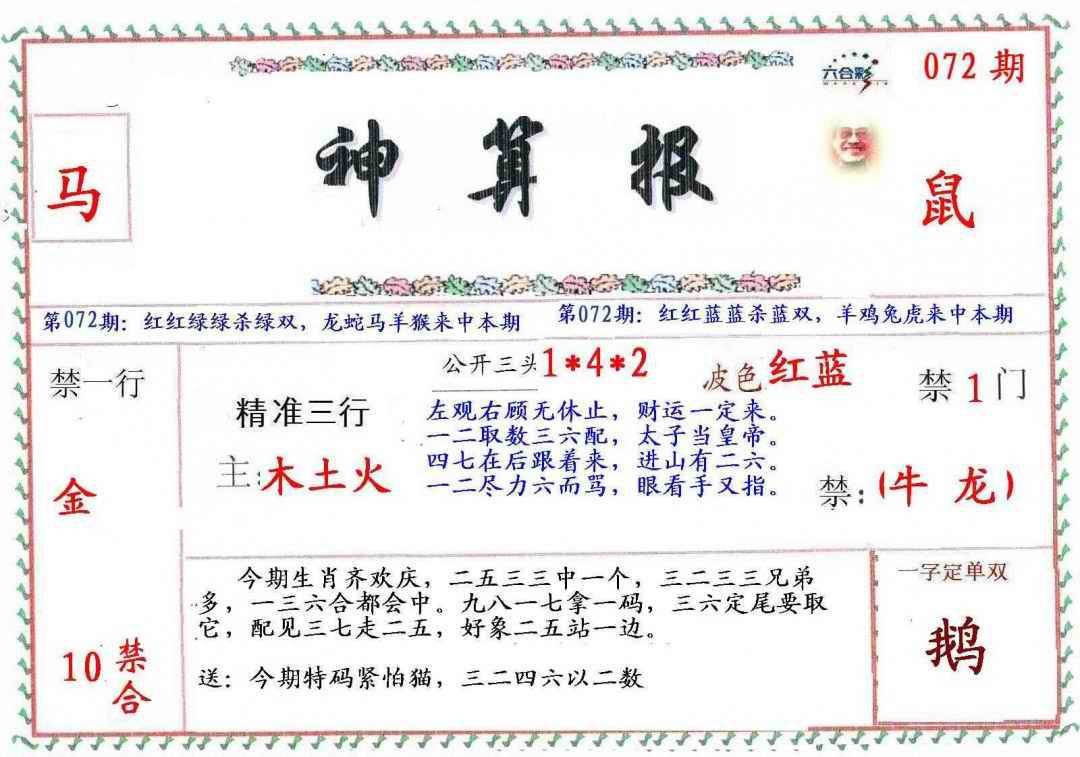 六合彩
072 期
马
神算报
鼠
第072期：红红绿绿杀绿双，龙蛇马羊猴来中本期
第072期：红红蓝蓝杀蓝双，羊鸡兔虎来中本期
禁一行
金
10 禁合
精准三行
主:木土火
公开三头1*4*2
波色红蓝
左观右顾无休止，财运一定来。
一二取数三六配，太子当皇帝。
四七在后跟着来，进山有二六。
一二尽力六而骂，眼看手又指。
禁1门
禁:(牛 龙)
今期生肖齐欢庆，二五三三中一个，三二三三兄弟
多，一三六合都会中。九八一七拿一码，三六定尾要取
它，配见三七走二五，好象二五站一边。
送：今期特码紧怕猫，三二四六以二数
一字定单双
鹅